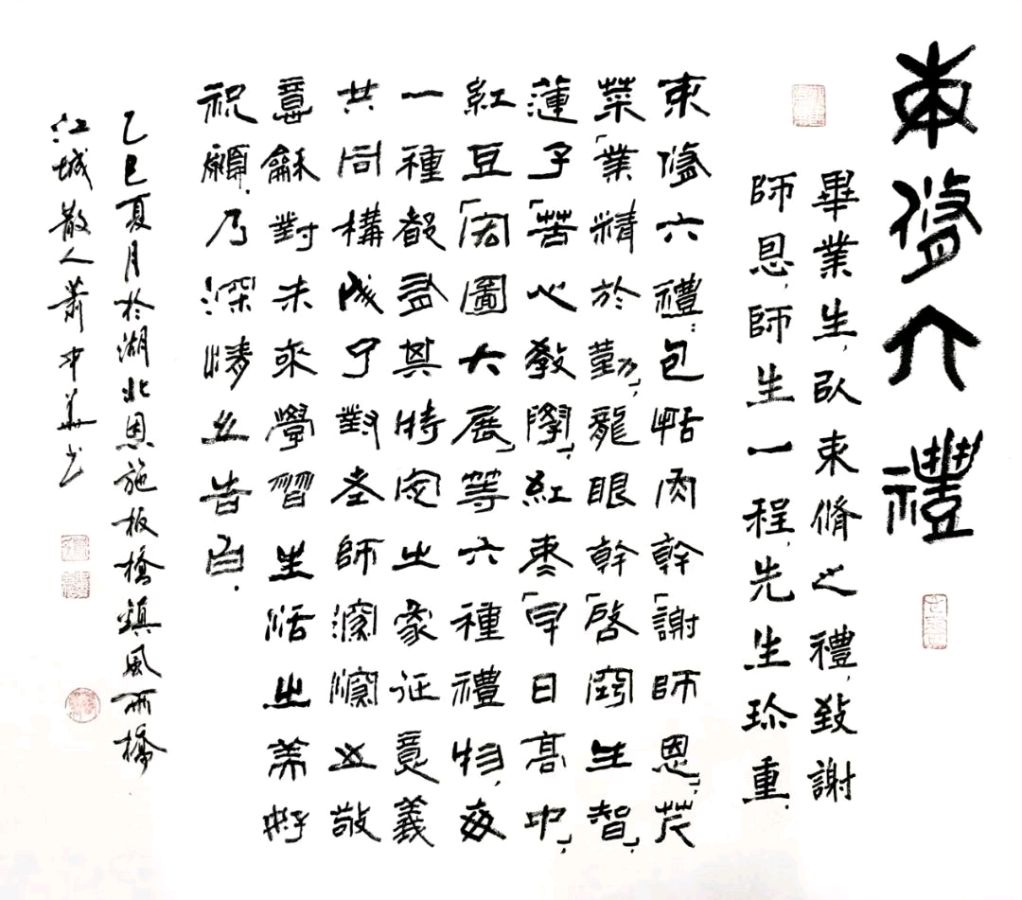 束脩六禮
畢業生,以束脩之禮,致謝
師恩,師生一程,先生珍重.
束脩六禮:包括肉幹「謝師恩」,芹
菜「業精於勤」,龍眼幹「啓竅生智」,
蓮子「苦心教學」,紅棗「早日高中」,
紅豆「宏圖大展」等六種禮物,每
一種都其特定之象征意義
共同構成了對老師濃濃之敬
意龢對未來學習生活之美好
祝願.乃深情之告白.
乙巳夏月於湖北恩施板橋鎮風雨橋
江城散人蕭中華书